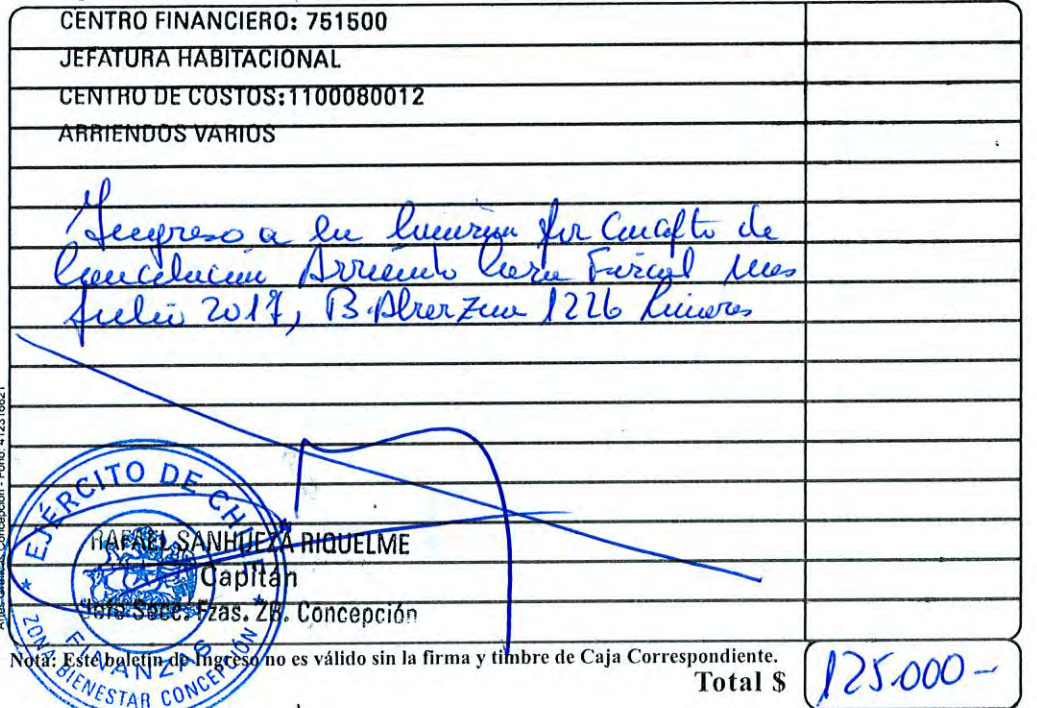 CENTRO FINANCIERO: 751500
JEFATURA HABITACIONAL
CENTRO DE COSTOS:1100080012
ARRIENDOS VARIOS
Ingreso a en por de
Cancelación Arriendo Casa Fiscal mes
Julio 2017, B. 1226 Linares
EJÉRCITO DE CHILE
RAFAEL SANHUEZA RIQUELME
Capitán
Jefe Secc. Fzas. ZB. Concepción
FINANZAS
ZONA BIENESTAR CONCEPCIÓN
Nota: Este boletín de Ingreso no es válido sin la firma y timbre de Caja Correspondiente.
Total $ 125.000-